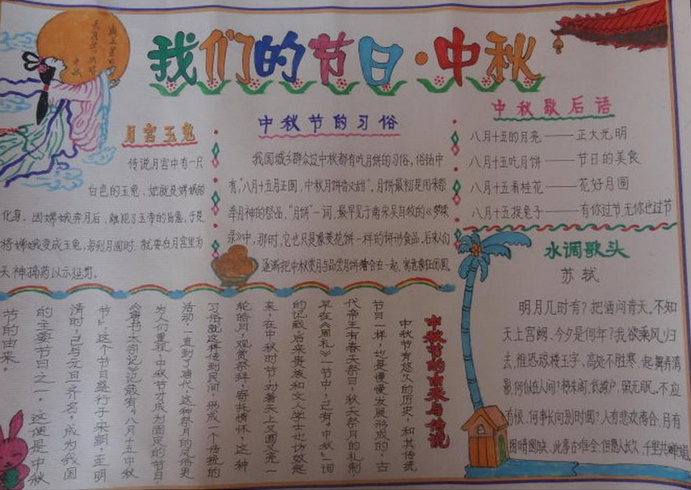 我们的节日·中秋
月宫玉兔
传说月宫中有一只
白色的玉兔,她就是嫦娥的
化身。因嫦娥奔月后,触犯了玉帝的旨意,于是
将嫦娥变成玉兔,每到月圆时,就要在月宫里为
天神捣药以示惩罚。
中秋节的习俗
我国城乡群众过中秋都有吃月饼的习俗,俗话中
有:"八月十五月正圆,中秋月饼香又甜"。月饼最初是用来祭
奉月神的祭品,"月饼"一词,最早见于南宋吴自牧的《梦粱
录》中,那时,它也只是像菱花饼一样的饼形食品,后来人们
逐渐把中秋赏月与品尝月饼结合在一起,寓意家人团圆。
中秋歇后语
八月十五的月亮——正大光明
八月十五吃月饼——节日的美食
八月十五看桂花——花好月圆
八月十五捉兔子——有你过节,无你也过节
水调歌头
苏轼
明月几时有?把酒问青天。不知
天上宫阙,今夕是何年?我欲乘风归
去,惟恐琼楼玉宇,高处不胜寒。起舞弄清
影,何似在人间?转朱阁,低绮户,照无眠。不应
有恨,何事长向别时圆?人有悲欢离合,月有
阴晴圆缺,此事古难全。但愿人长久,千里共婵娟
中秋节的由来与传说
中秋节有悠久的历史,和其他传统
节日一样,也是慢慢发展形成的,古
代帝王有春天祭日,秋天祭月的礼制,
早在《周礼》一书中,已有"中秋"一词
的记载。后来贵族和文人学士也仿效起
来,在中秋时节,对着天上又圆又亮一
轮皓月,观赏祭拜,寄托情怀,这种
习俗就这样传到民间,形成一个传统的
活动,一直到了唐代,这种祭月的风俗更
为人们重视,中秋节才成为固定的节日,
《唐书·太宗记》记载有"八月十五中秋
节",这个节日盛行于宋朝,至明
清时,已与元旦齐名,成为我国
的主要节日之一。这便是中秋
节的由来。